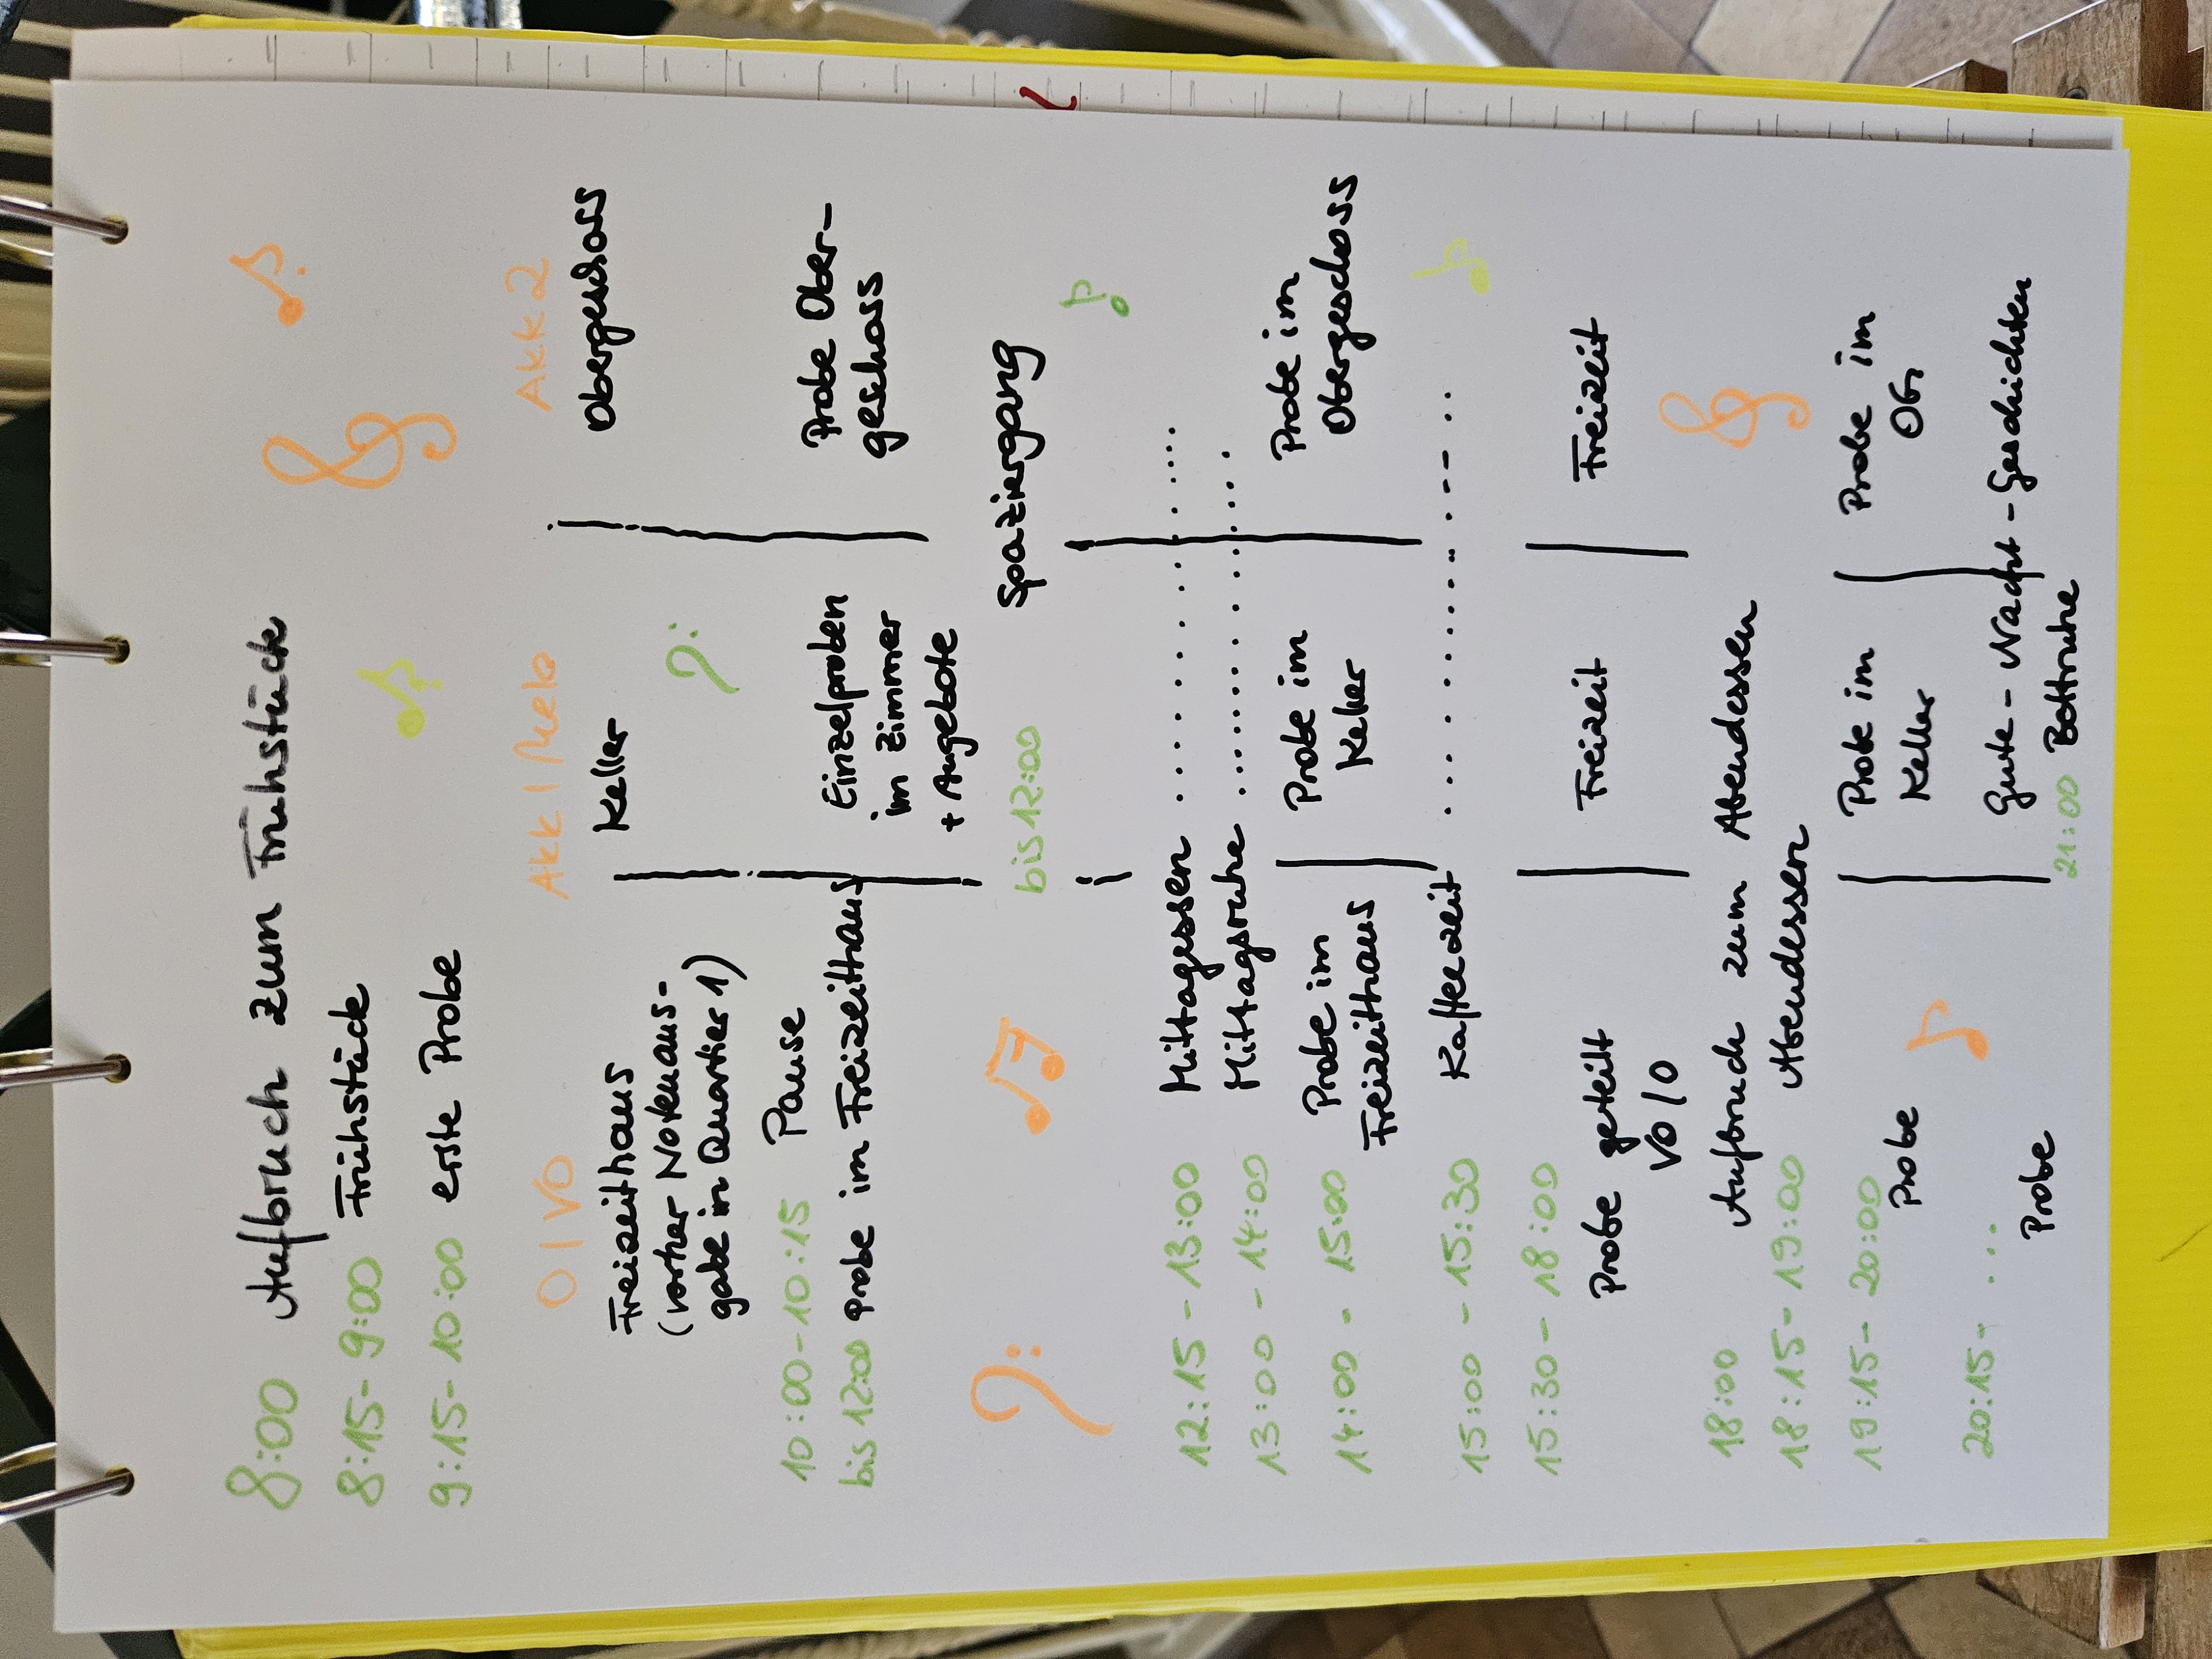 8:00 Aufbruch zum Frühstück
8:15-9:00 Frühstück
9:15-10:00 erste Probe
O/VO Akk1/Melo Akk2
Freizeithaus Keller Obergeschoss
(vorher Notenaus-
gabe in Quartier 1)
10:00-10:15 Pause
bis 12:00 Probe im Freizeithaus Einzelproben Probe Ober-
im Zimmer geschoss
+ Angebote
bis 12:00 Spaziergang
12:15-13:00 Mittagessen
13:00-14:00 Mittagsruhe
14:00-15:00 Probe im Probe im Probe im
Freizeithaus Keller Obergeschoss
15:00-15:30 Kaffeezeit
15:30-18:00
Probe geteilt Freizeit Freizeit
VO/O
18:00 Aufbruch zum Abendessen
18:15-19:00 Abendessen
19:15-20:00 Probe im Probe im
Probe Keller OG
20:15-... Gute-Nacht-Geschichten
Probe 21:00 Bettruhe